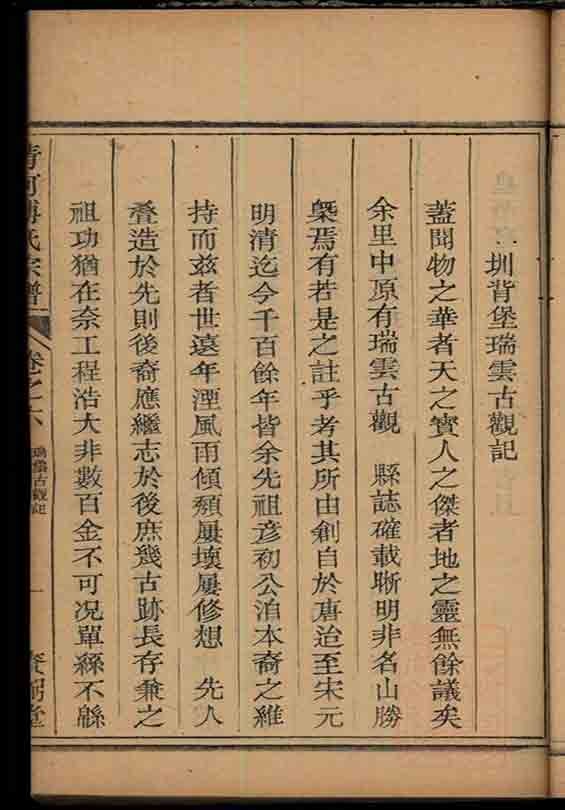 圳背堡瑞雲古觀記
蓋聞物之華者天之寳人之傑者地之靈無餘議矣
余里中原有瑞雲古觀 縣誌確載晣明非名山勝
槩焉有若是之註乎考其所由創自於唐迨至宋元
明清迄今千百餘年皆余先祖彦初公洎本裔之維
持而兹者世遠年湮風雨傾頽屢壞屢修想 先人
肇造於先則後裔應繼志於後庶幾古跡長存兼之
祖功猶在奈工程浩大非數百金不可况單絲不緜
清河傅氏宗譜 卷之六 瑞雲古觀記 一 堂